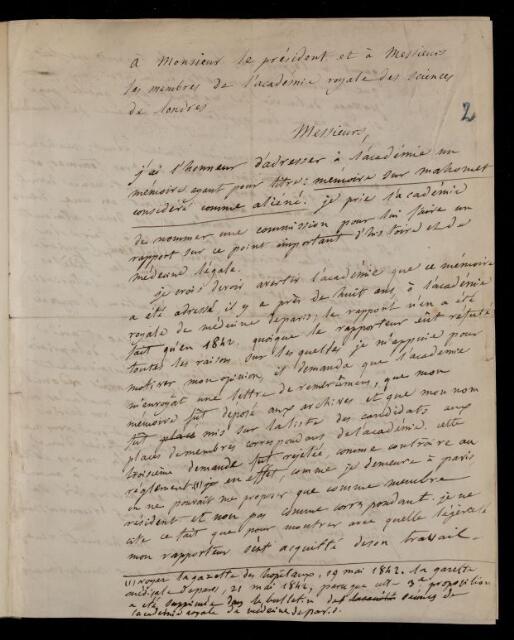 a Monsieur le président et à Messieurs
les membres de l'académie royale des sciences
de londres
2
Messieurs,
j'ai l'honneur d'adresser à l'académie un
mémoire ayant pour titre: mémoire sur mahomet
considéré comme aliené. je prie l'academie
de nommer une commission pour lui faire un
rapport sur ce point important d'histoire et de
médecine légale.
je crois devoir avertir l'académie que ce mémoire
a été adressé il y a près de huit ans, à l'académie
royale de médecine deparis; le rapport n'en a été
fait qu'en 1842. quoique le rapporteur eût refuté
toutes les raisons sur lesquelles je m'appuie pour
motiver mon opinion, il demanda que l'academie
m'envoyât une lettre de remercîmens, que mon
mémoire fût deposé aux archives et que mon nom
fût placé mis sur la liste des candidats aux
places demembres correspondans del'académie. cette
troisieme demande fut rejetée, comme contraire au
réglement (1) en effet, comme je demeure à paris
on ne pouvait me proposer que comme membre
résident et non pas comme correspondant. je ne
cite ce fait que pour montrer avec quelle légèreté
mon rapporteur s'est acquitté deson travail.
(1) voyez la gazette des hopitaux, 19 mai 1842. la gazette
médicale deparis, 21 mai 1842, parceque cette 3e proposition
a été supprimée dans le bulletin des séances de
l'académie royale de médecine deparis.